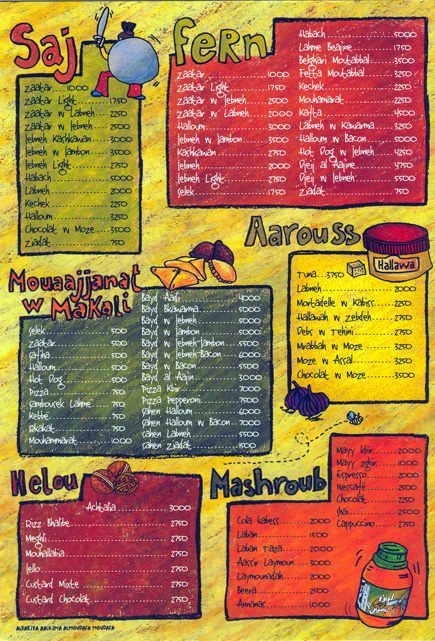 Saj
Zaatar 1000
Zaatar Light 1750
Zaatar w Labneh 2250
Zaatar w Jebneh 2500
Jebneh Kachkawan 3000
Jebneh w Jambon 3500
Jebneh Light 2750
Habach 5000
Labneh 2000
Kechek 2250
Halloum 3250
Chocolat w Moze 3500
Ziadat 750
Fern
Zaatar 1000
Zaatar Light 1750
Zaatar w Jebneh 2500
Zaatar w Labneh 2000
Halloum 3000
Jebneh w Jambon 3500
Kachkawan 2750
Jebneh 2500
Jebneh Light 2750
Selek 1750
Habach 5000
Lahme Beajine 1750
Belghari Moutabbal 3500
Fetta Moutabbal 3250
Kechek 2250
Mouhamarat 2250
Kafta 4500
Labneh w Kawarma 3250
Halloum w Bacon 5000
Hot Dog w Jebneh 4250
Djej al Aajine 4750
Djej w Jebneh 5500
Ziadat 750
Aarouss
Hallawa
Tuna 3750
Labneh 2000
Mortadelle w Kabiss 2250
Hallawah w Zebdeh 2750
Debs w Tehini 2750
Mrabbah w Moze 3250
Moze w Assal 3250
Chocolat w Moze 3500
Mouaajjanat
w Makali
Selek 500
Zaatar 500
Safiha 500
Halloum 500
Hot Dog 500
Pizza 750
Sambousek Lahme 750
Kebbe 750
Rkakat 750
Mouhammarat 1000
Bayd Aadi 4000
Bayd Bkawarma 5000
Bayd w Jebneh 5000
Bayd w Jambon 5000
Bayd w Jebneh-Jambon 5500
Bayd w Jebneh-Bacon 6000
Bayd w Bacon 5500
Bayd al Aajin 3000
Pizza Kbir 7000
Pizza Pepperoni 7500
Sahen Halloum 6000
Sahen Halloum w Bacon 7000
Sahen Labneh 5500
Sahen Ziadat 1500
Helou
Achtalia 3000
Rizz Bhalibe 2750
Meghli 2750
Mouhallabia 2750
Jello 2750
Custard Mixte 2750
Custard Chocolat 2750
Mashroub
Cola Kabess 2000
Laban 1500
Laban Taza 2000
Aassir Laymoun 3000
Laymounadah 2000
Beera 2500
Annanas 1000
Mayy kbir 2000
Mayy zghir 1000
Espresso 2000
Nescafé 2500
Chocolat 2250
Shai 2500
Cappuccino 2750
ALDARIBA AALKIMA ALMOUDAFA MOUDAFA